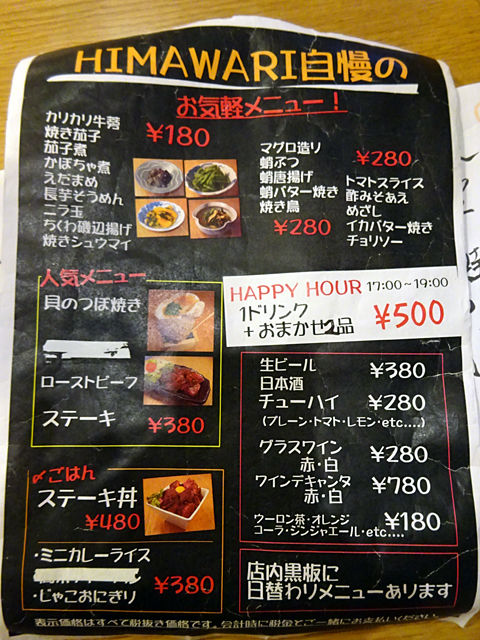 HIMAWARI自慢の
お気軽メニュー！
カリカリ牛蒡
焼き茄子
茄子煮
かぼちゃ煮
えだまめ
長芋そうめん
ニラ玉
ちくわ磯辺揚げ
焼きシュウマイ
¥180
マグロ造り
蛸ぶつ
蛸唐揚げ
蛸バター焼き
焼き鳥
¥280
¥280
トマトスライス
酢みそあえ
めざし
イカバター焼き
チョリソー
人気メニュー
貝のつぼ焼き
ローストビーフ
ステーキ
¥380
HAPPY HOUR 17:00~19:00
1ドリンク
+おまかせ2品
¥500
生ビール ¥380
日本酒
チューハイ ¥280
(プレーン・トマト・レモン・etc....)
グラスワイン ¥280
赤・白
ワインデキャンタ ¥780
赤・白
ウーロン茶・オレンジ ¥180
コーラ・ジンジャエール・etc....
ごはん
ステーキ丼
¥480
・ミニカレーライス
・じゃこおにぎり
¥380
店内黒板に
日替わりメニューあります
表示価格はすべて税抜き価格です。会計時に税金とご一緒にお支払いください。